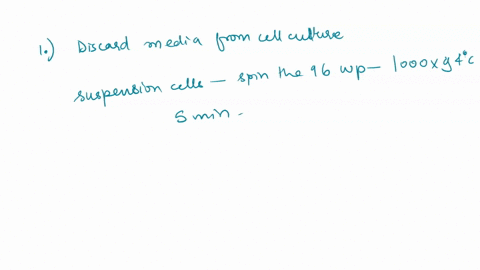 1.) Discard media from cell culture
suspension cells — spin the 96 wp — 1000xg 4°c
5 min.